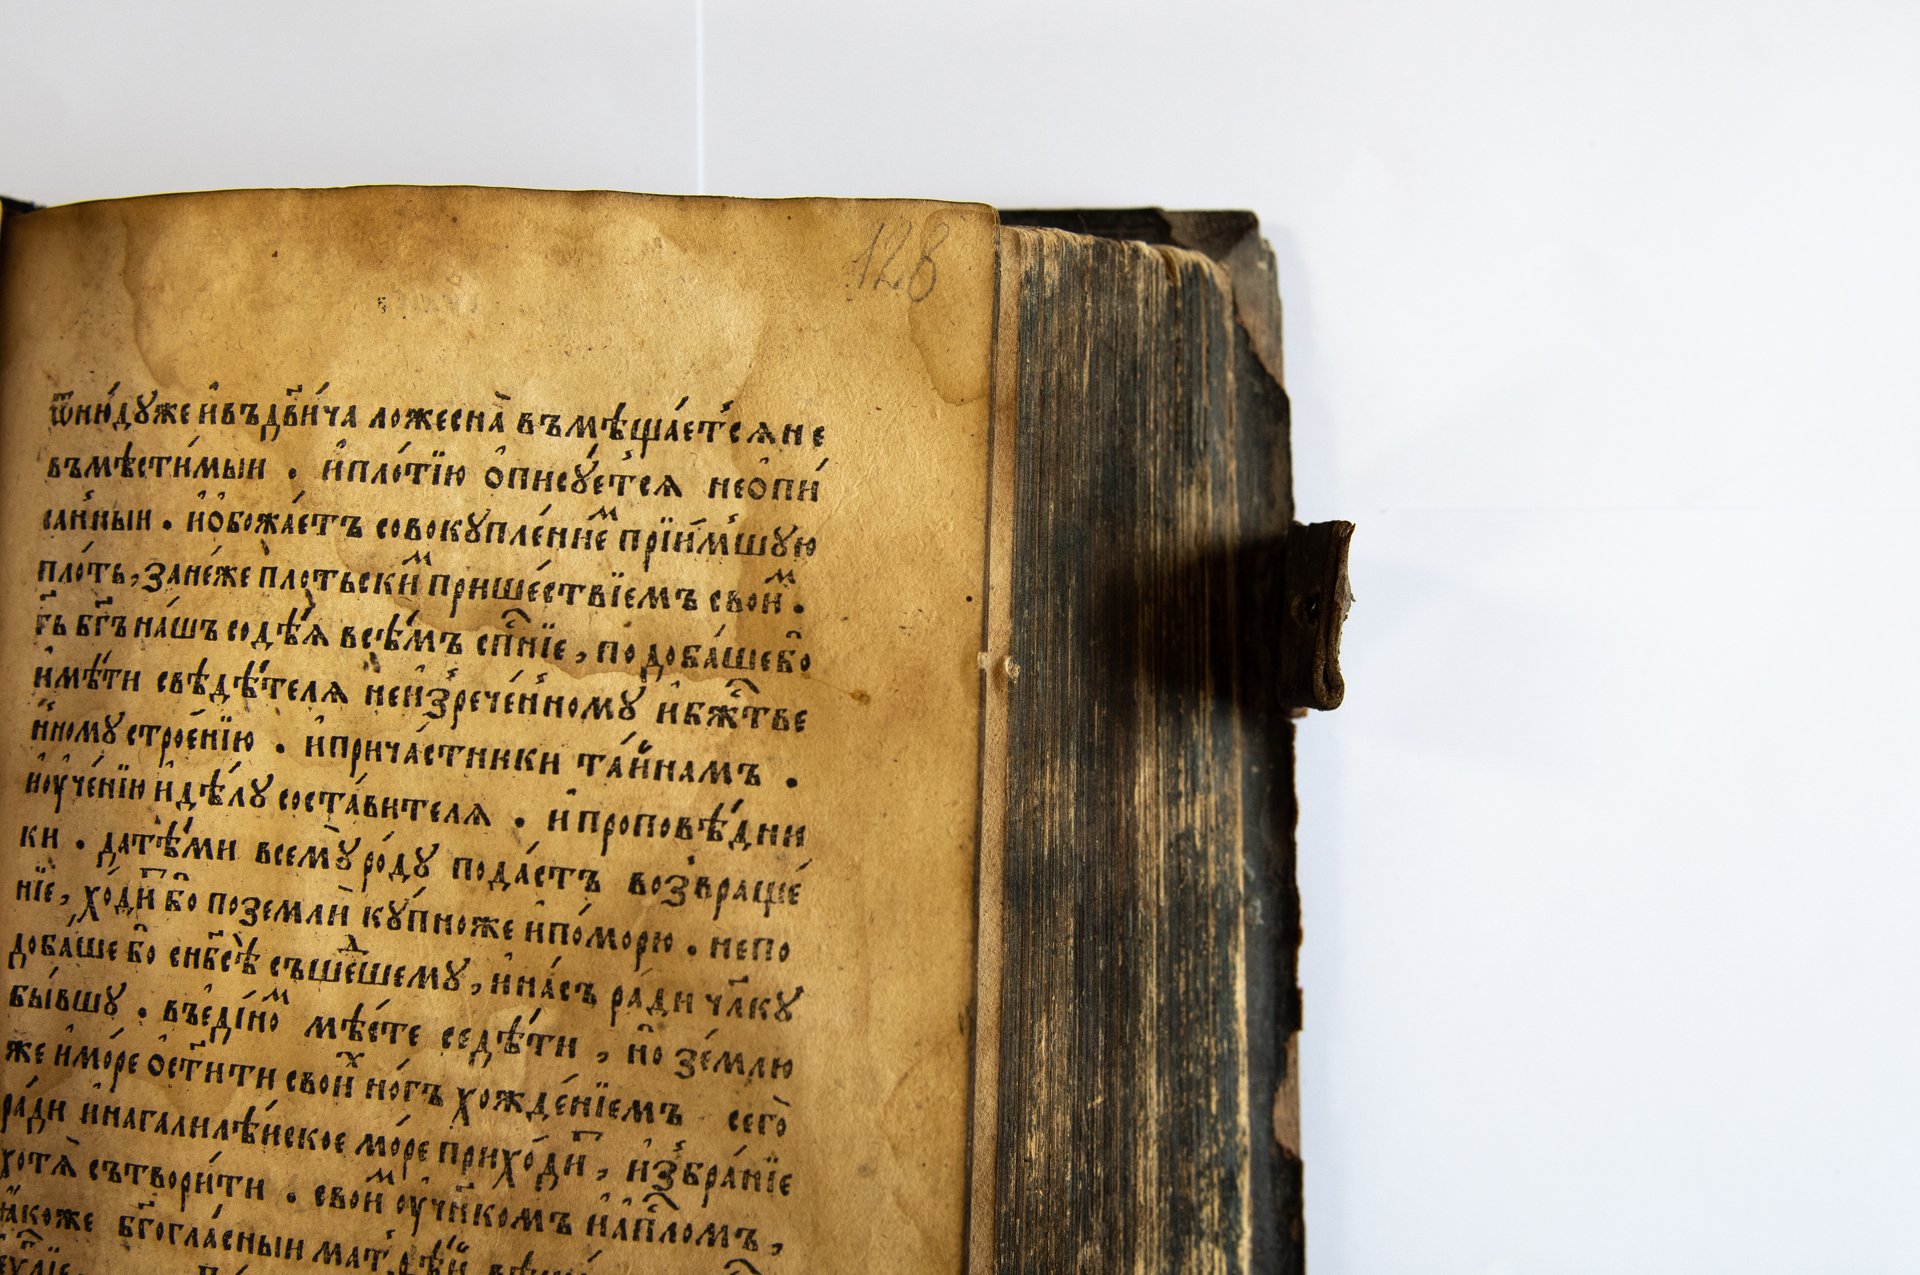 128
ѿню́дꙋже и҆въдв҃и́ча ложеснà въмѣща́етсѧ не
въмѣсти́мыи . и҆пло́тїю ѻ҆писꙋ́етсѧ неѻ҆пи́
са́нныи . и҆ѻ҆божа́етъ совокꙋпле́нїемъ прїи́мшꙋю
пло́ть, зане́же плотьски́м прише́ствїемъ свои́м .
гь бг҃ъ на́шъ содѣ́ѧ всѣ́мъ сп҃нїе , подоба́ше бо̀
и҆мѣ́ти свѣдѣ́телѧ неи҆зрече́нномꙋ и҆бж҃тве
нномꙋ строе́нїю . и҆прича́стники та́инамъ .
и҆ᲂу҆че́нїю и҆дѣ́лꙋ соста́вителѧ . и҆проповѣ́дни
ки . датѣ́ми всемꙋ̀ ро́дꙋ пода́стъ возвраще́
нїе , хо́ди бо̀ поземлѝ кꙋ́пноже и҆по́морю . непо
доба́ше бо̀ снб҃сѐ съше́дшемꙋ , и҆на́съ ра́ди чл҃кꙋ
бы́вшꙋ . въе҆ди́ном мѣ́сте седѣ́ти , но̀ зе́млю
же и҆мо́ре ѻ҆ст҃и́ти свои́х но́гъ хожде́нїемъ сего̀
ра́ди и҆нагалилѣ́йское мо́ре прихо́дит , и҆збра́нїе
хотѧ̀ сътвори́ти . свои́м ᲂу҆ч҃нкомъ и҆ап҃ломъ ,
ꙗ҆́коже бг҃огла́сныи матѳѣ́й